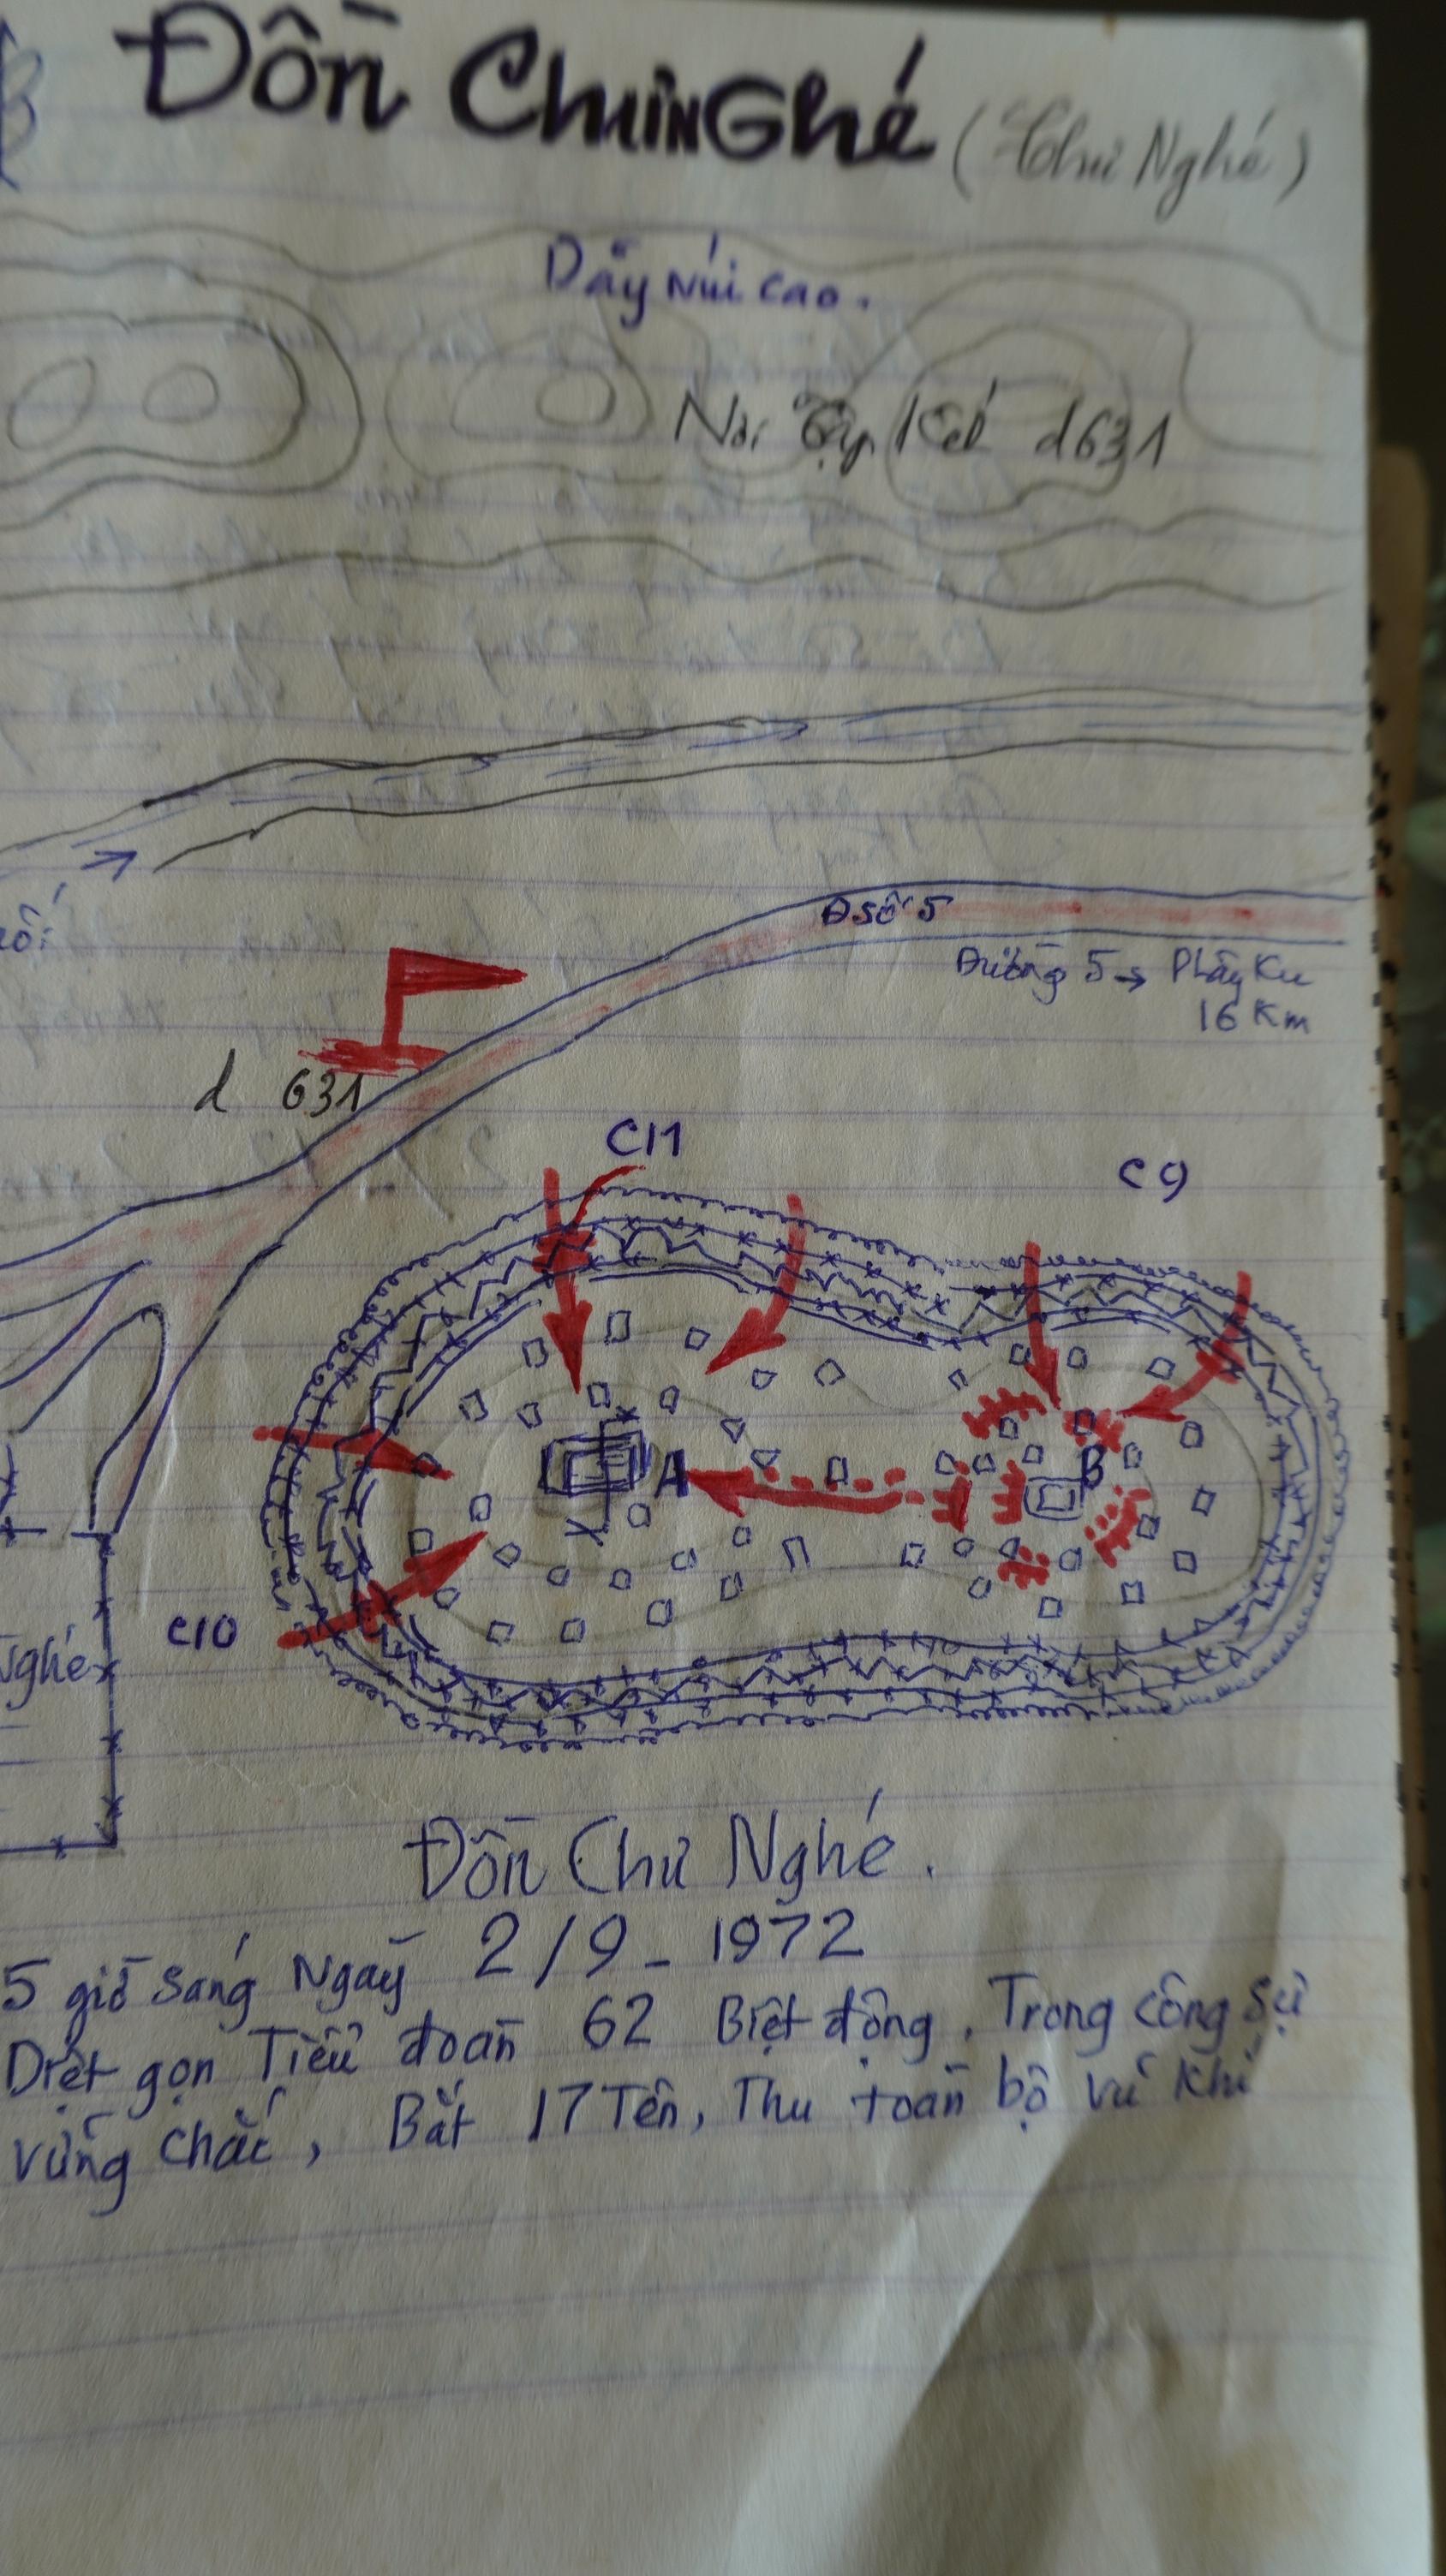 Đồn ChưNGhé (Chư Nghé)
Dãy núi cao.
Nơi Tập Kết d631
Đ số 5
Đường 5 → Plây Ku
16 Km
d 631
C11
C9
A
B
C10
Nghé
Đồn Chư Nghé.
5 giờ sáng Ngày 2/9 - 1972
Diệt gọn Tiểu đoàn 62 Biệt động. Trong công sự
vững chắc, Bắt 17 Tên, Thu toàn bộ vũ khí